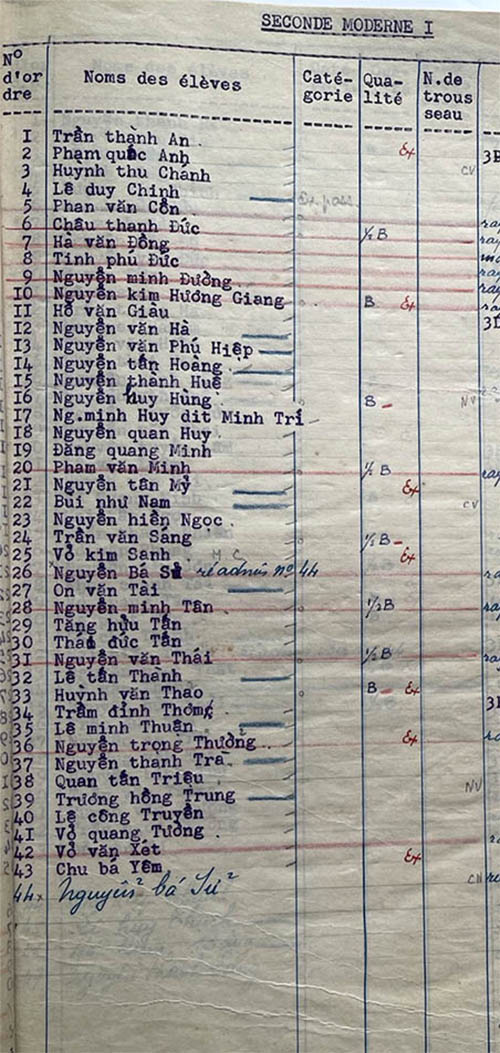 SECONDE MODERNE I
N° d'or dre Noms des élèves Caté- gorie Qua- lité N.de trous seau
I Trần thành An
2 Phạm quốc Anh Ex 3E
3 Huỳnh thu Chành CV
4 Lê duy Chinh
5 Phan văn Cồn
6 Châu thanh Đức ½ B
7 Hà văn Đồng
8 Tinh phú Đức
9 Nguyễn minh Đường
IO Nguyễn kim Hương Giang B Ex
II Hồ văn Giàu
I2 Nguyễn văn Hà
I3 Nguyễn văn Phú Hiệp
I4 Nguyễn tấn Hoàng
I5 Nguyễn thanh Huê
I6 Nguyễn huy Hùng B NV
I7 Ng.minh Huy dit Minh Trí
I8 Nguyễn quan Huy
I9 Đăng quang Minh
20 Pham văn Minh ½ B
2I Nguyễn tân Mỷ Ex
22 Bùi như Nam CV
23 Nguyễn hiền Ngọc
24 Trần văn Sáng ½ B
25 Vỏ kim Sanh M C Ex
26 Nguyễn Bá Sử réadmis n° 44
27 On văn Tài
28 Nguyễn minh Tân ½ B
29 Tăng hựu Tấn
30 Thái đức Tấn
3I Nguyễn văn Thái ½ B
32 Lê tấn Thành
33 Huỳnh văn Thao B Ex
34 Trầm đình Thơmg
35 Lê minh Thuận
36 Nguyễn trọng Thưởng Ex
37 Nguyễn thanh Trà
38 Quan tấn Triệu NV
39 Trương hồng Trung
40 Lê công Truyền
4I Vỏ quang Tường
42 Vỏ văn Xét Ex
43 Chu bá Yêm
44 Nguyễn bá Sử